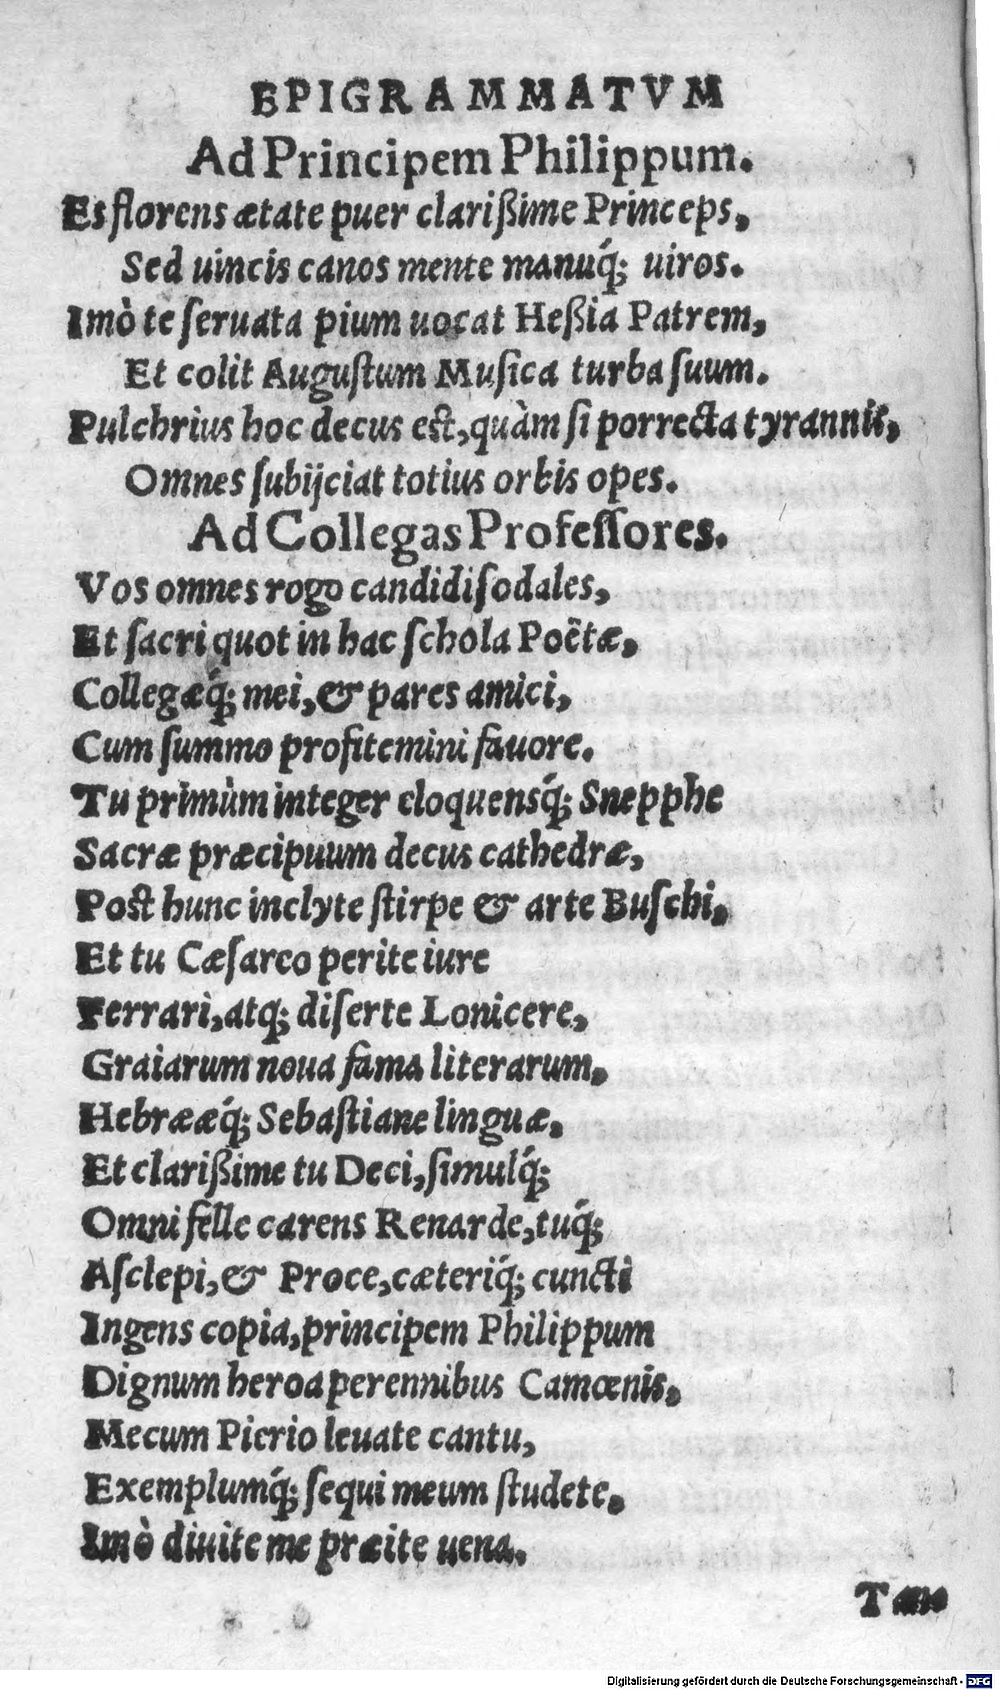 EPIGRAMMATVM
Ad Principem Philippum.
Es florens ætate puer clarißime Princeps,
Sed uincis canos mente manuq́; uiros.
Imò te ſeruata pium uocat Heßia Patrem,
Et colit Auguſtum Muſica turba ſuum.
Pulchrius hoc decus eſt, quàm ſi porrecta tyrannis,
Omnes ſubijciat totius orbis opes.
Ad Collegas Profeſſores.
Vos omnes rogo candidi ſodales,
Et ſacri quot in hac ſchola Poëtæ,
Collegæq́; mei, & pares amici,
Cum ſummo profitemini fauore.
Tu primùm integer eloquensq́; Snepphe
Sacræ præcipuum decus cathedræ,
Poſt hunc inclyte ſtirpe & arte Buſchi,
Et tu Cæſareo perite iure
Ferrari, atq; diſerte Lonicere,
Graiarum noua fama literarum,
Hebrææq́; Sebaſtiane linguæ.
Et clarißime tu Deci, ſimulq́;
Omni felle carens Renarde, tuq́;
Aſclepi, & Proce, cæteriq́; cuncti
Ingens copia, principem Philippum
Dignum heroa perennibus Camœnis,
Mecum Pierio leuate cantu,
Exemplumq́; ſequi meum ſtudete,
Imò diuite me præite uena.
Tam
Digitalisierung gefördert durch die Deutsche Forschungsgemeinschaft - DFG